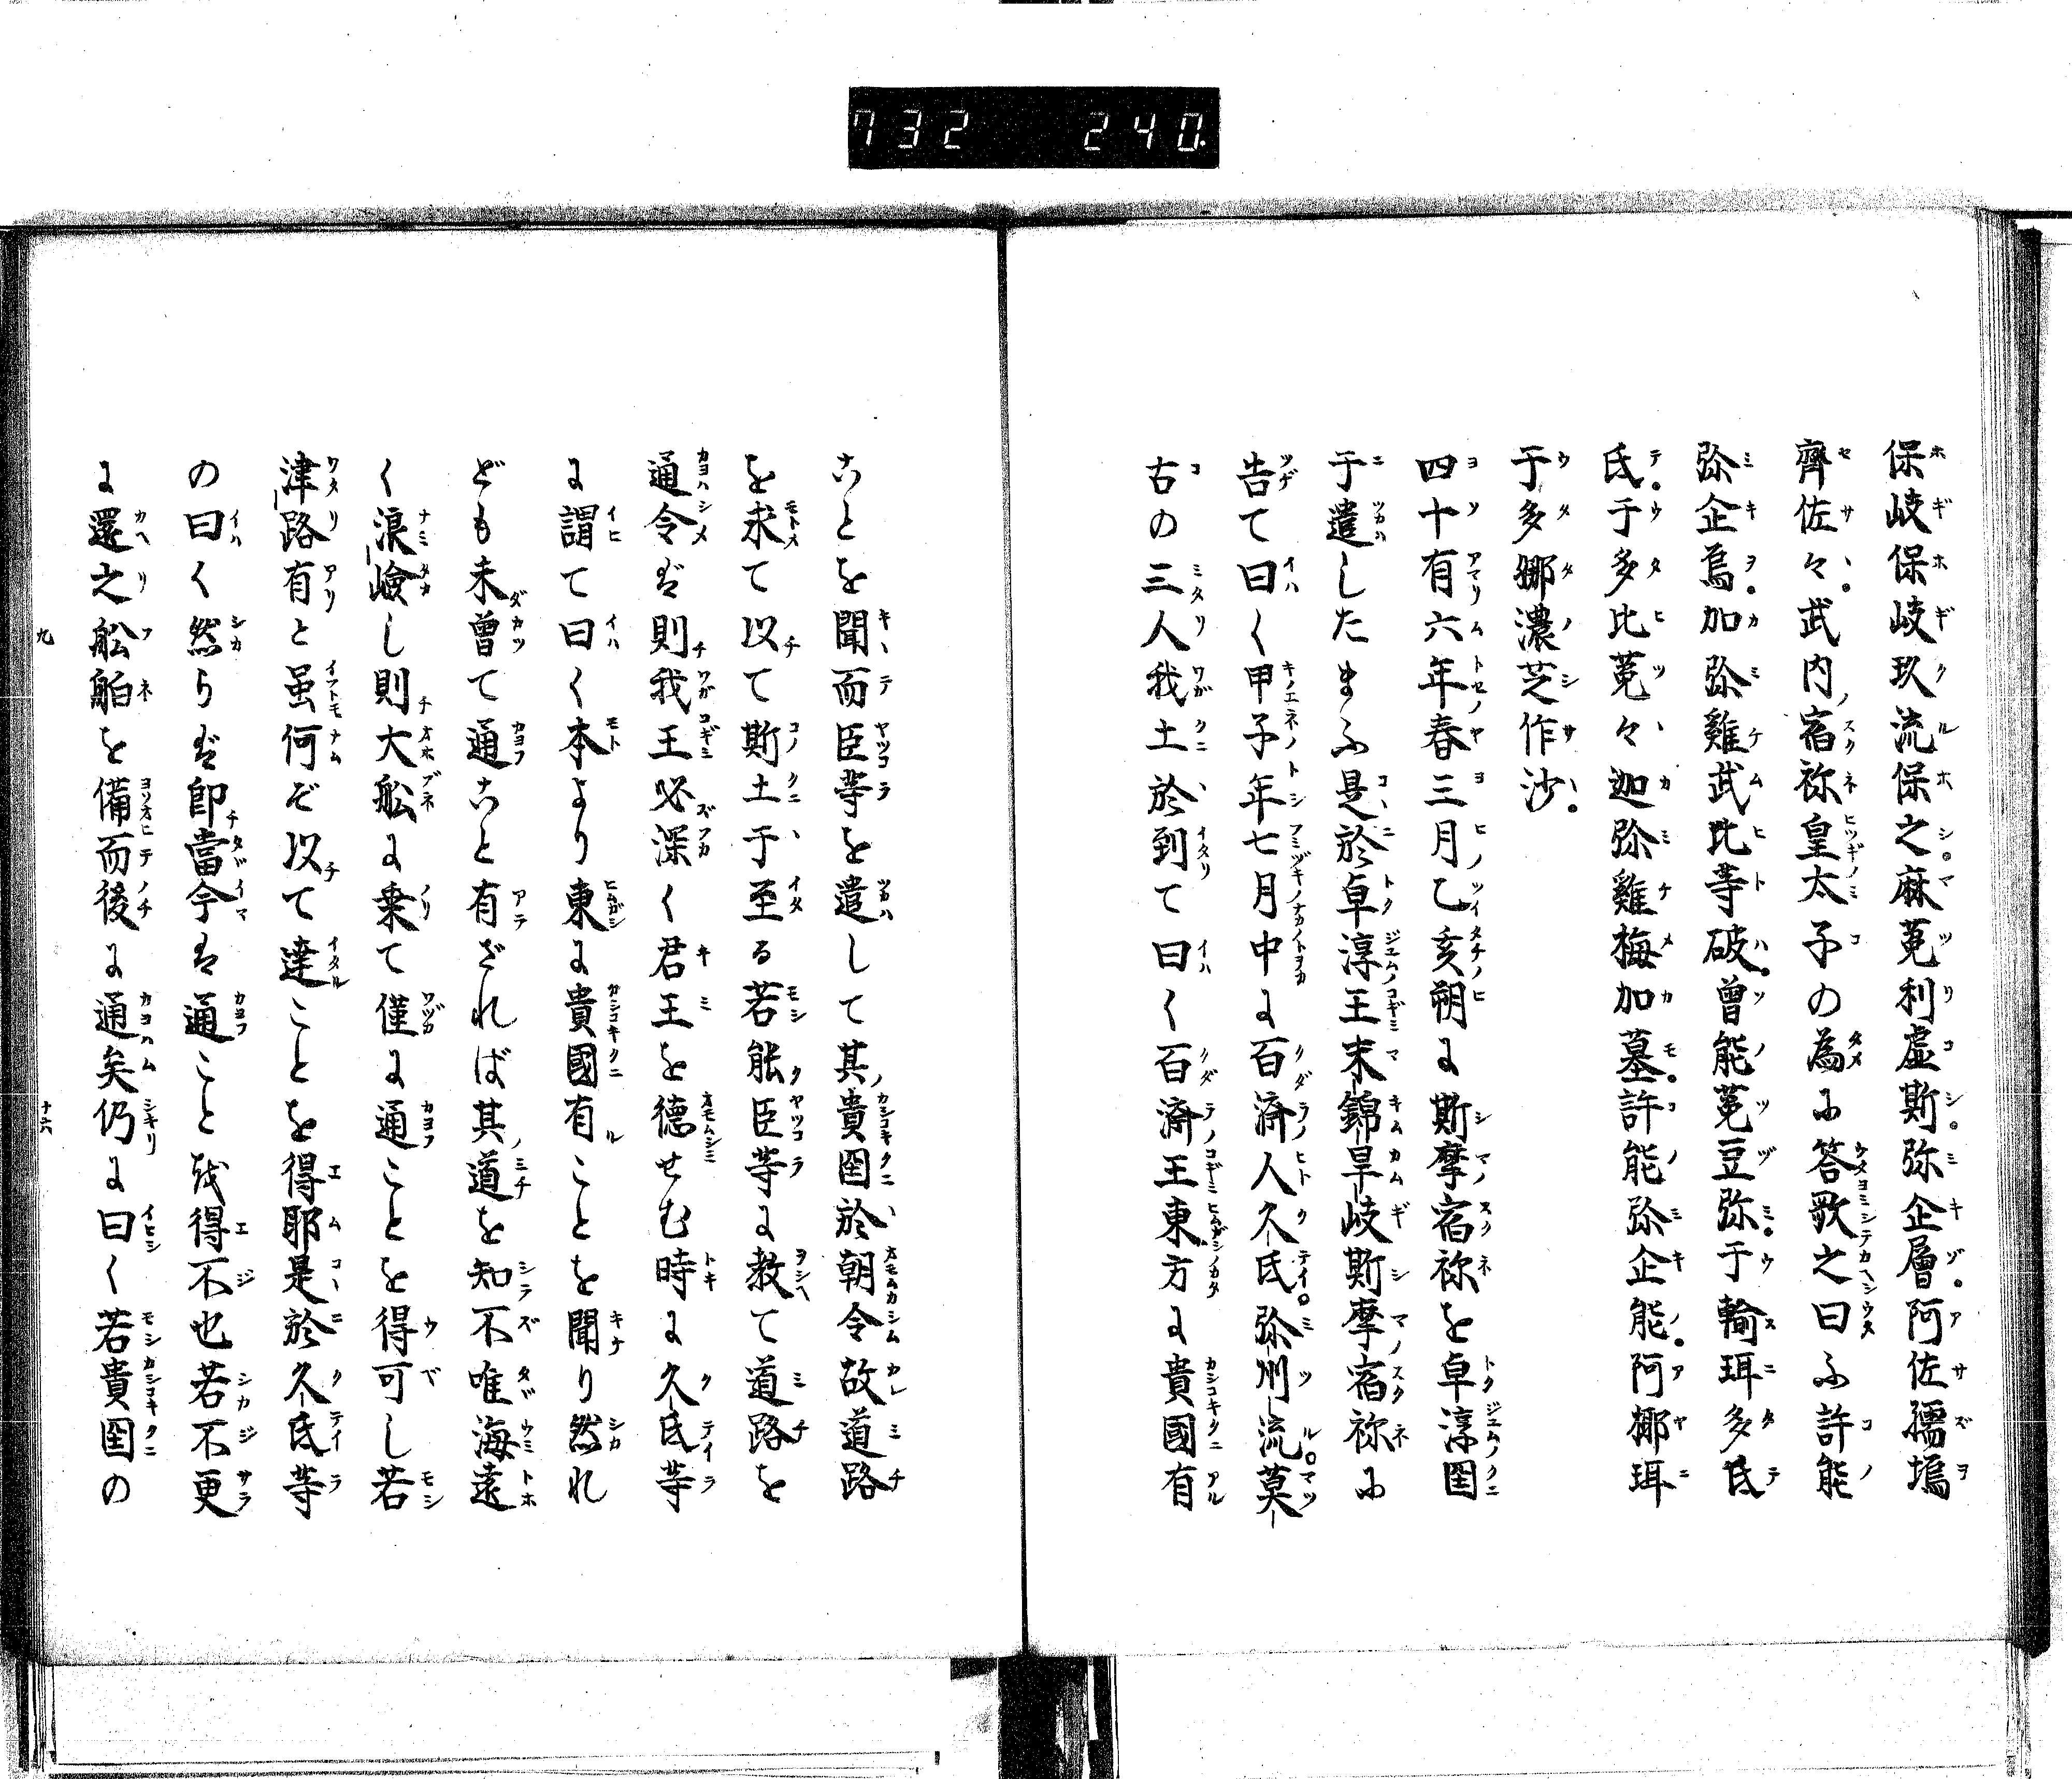 732 240.
保岐保岐玖流保之麻菟利虚斯弥企層阿佐孺塢
齊佐々武内宿祢皇太子の為に答歌之曰ふ許能
弥企焉加弥雞武比等破曽能菟豆弥于輪珥多氐
氐于多比菟々迦弥雞梅加墓許能弥企能阿椰珥
于多娜濃芝作沙
四十有六年春三月乙亥朔に斯摩宿祢を卓淳国
于遣したまふ是於卓淳王末錦旱岐斯摩宿祢に
告て曰く甲子年七月中に百済人久氐弥州流莫
古の三人我土於到て曰く百済王東方に貴國有
ことを聞而臣等を遣して其貴国於朝令故道路
を求て以て斯土于至る若能臣等に教て道路を
通令ば則我王必深く君王を徳せむ時に久氐等
に謂て曰く本より東に貴國有ことを聞り然れ
ども未曽て通こと有ざれば其道を知不唯海遠
く浪嶮し則大舩に乗て僅に通ことを得可し若
津路有と虽何ぞ以て達ことを得耶是於久氐等
の曰く然らば即當今は通こと我得不也若不更
に還之舩舶を備而後に通矣仍に曰く若貴国の
九
十六